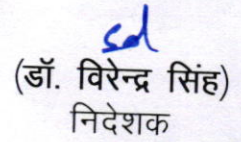 sd
(डॉ. विरेन्द्र सिंह)
निदेशक